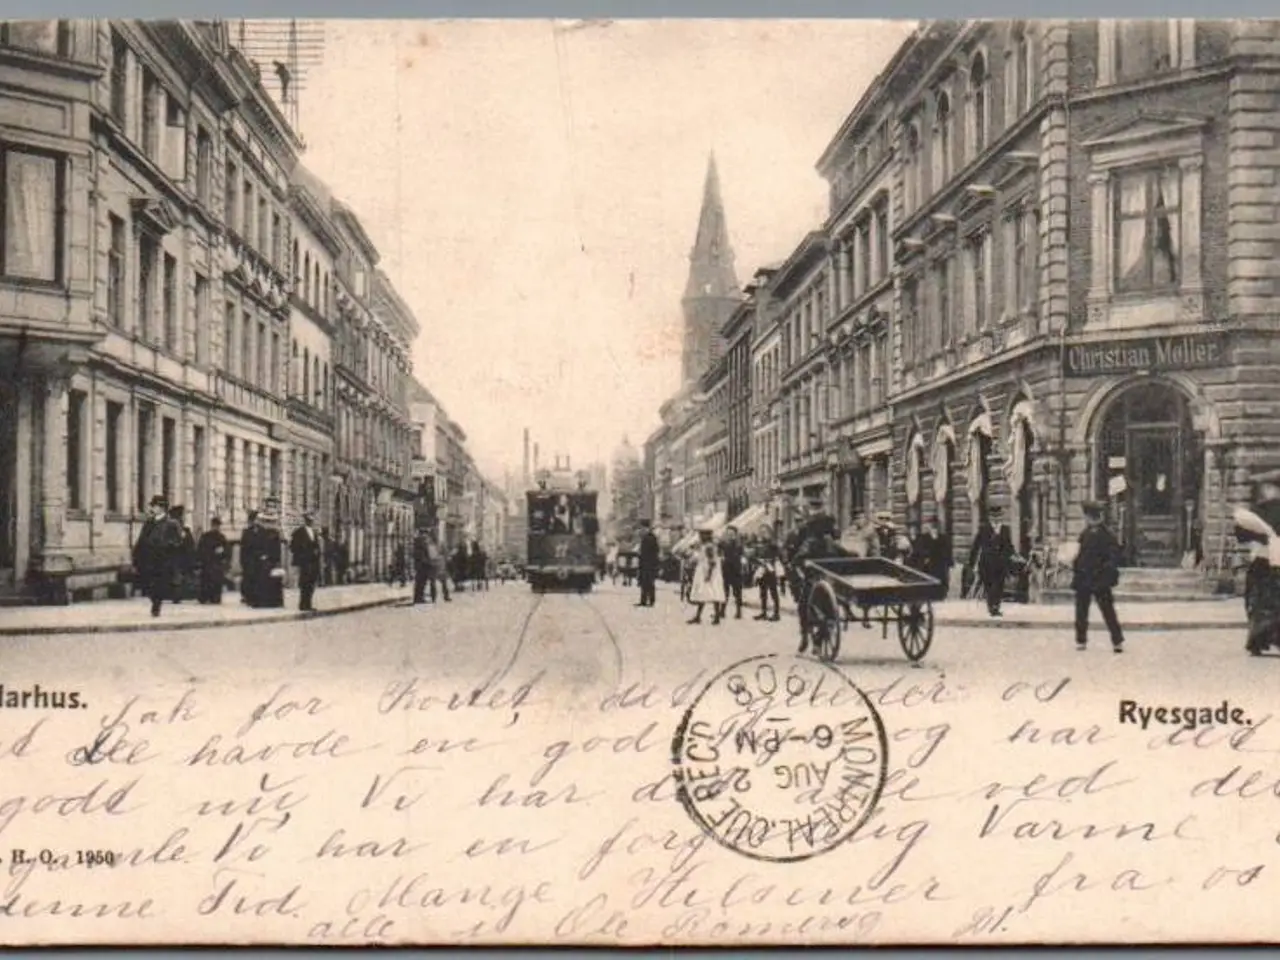 Christian Møller.
Aarhus.
Ryesgade.
Tak for Kortet, det glæder os
at De havde en god Rejse og har det
godt nu, Vi har det alle ved det
gamle Vi har en forfærdelig Varme i
denne Tid. Mange Hilsener fra os
alle i Ole Rømersg 21.
H. O. 1950
MONTREAL. QUE REC'D
6-PM
AUG 2
1908